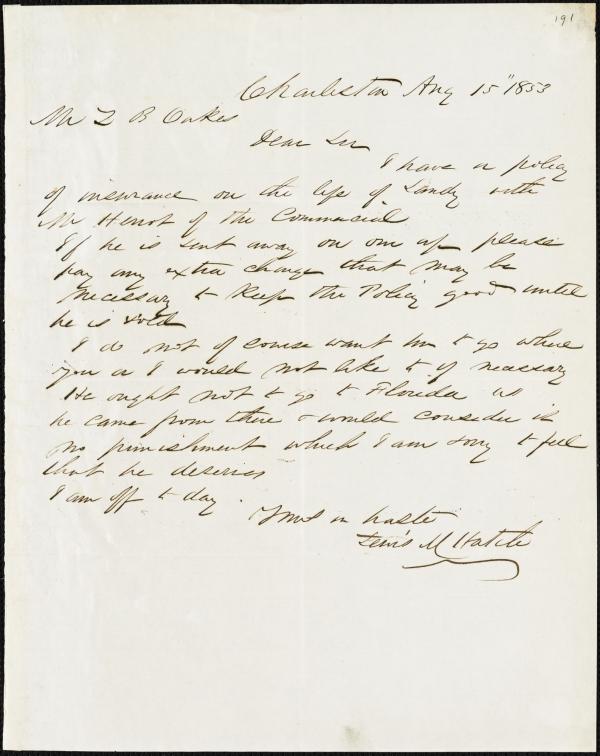 191
Charleston Aug 15" 1853
Mr Z B Oakes
Dear Sir
I have a policy
of insurance on the life of Sandy with
Mr Henot of the Commercial.
If he is sent away on our a/c please
pay any extra charge that may be
necessary to keep the Policy good until
he is sold
I do not of course want him to go where
you or I would not like to if necessary
He ought not to go to Florida as
he came from there & would consider it
no punishment which I am sorry to feel
that he deserves
I am off to day.
Yours in haste
Lewis M Hatch